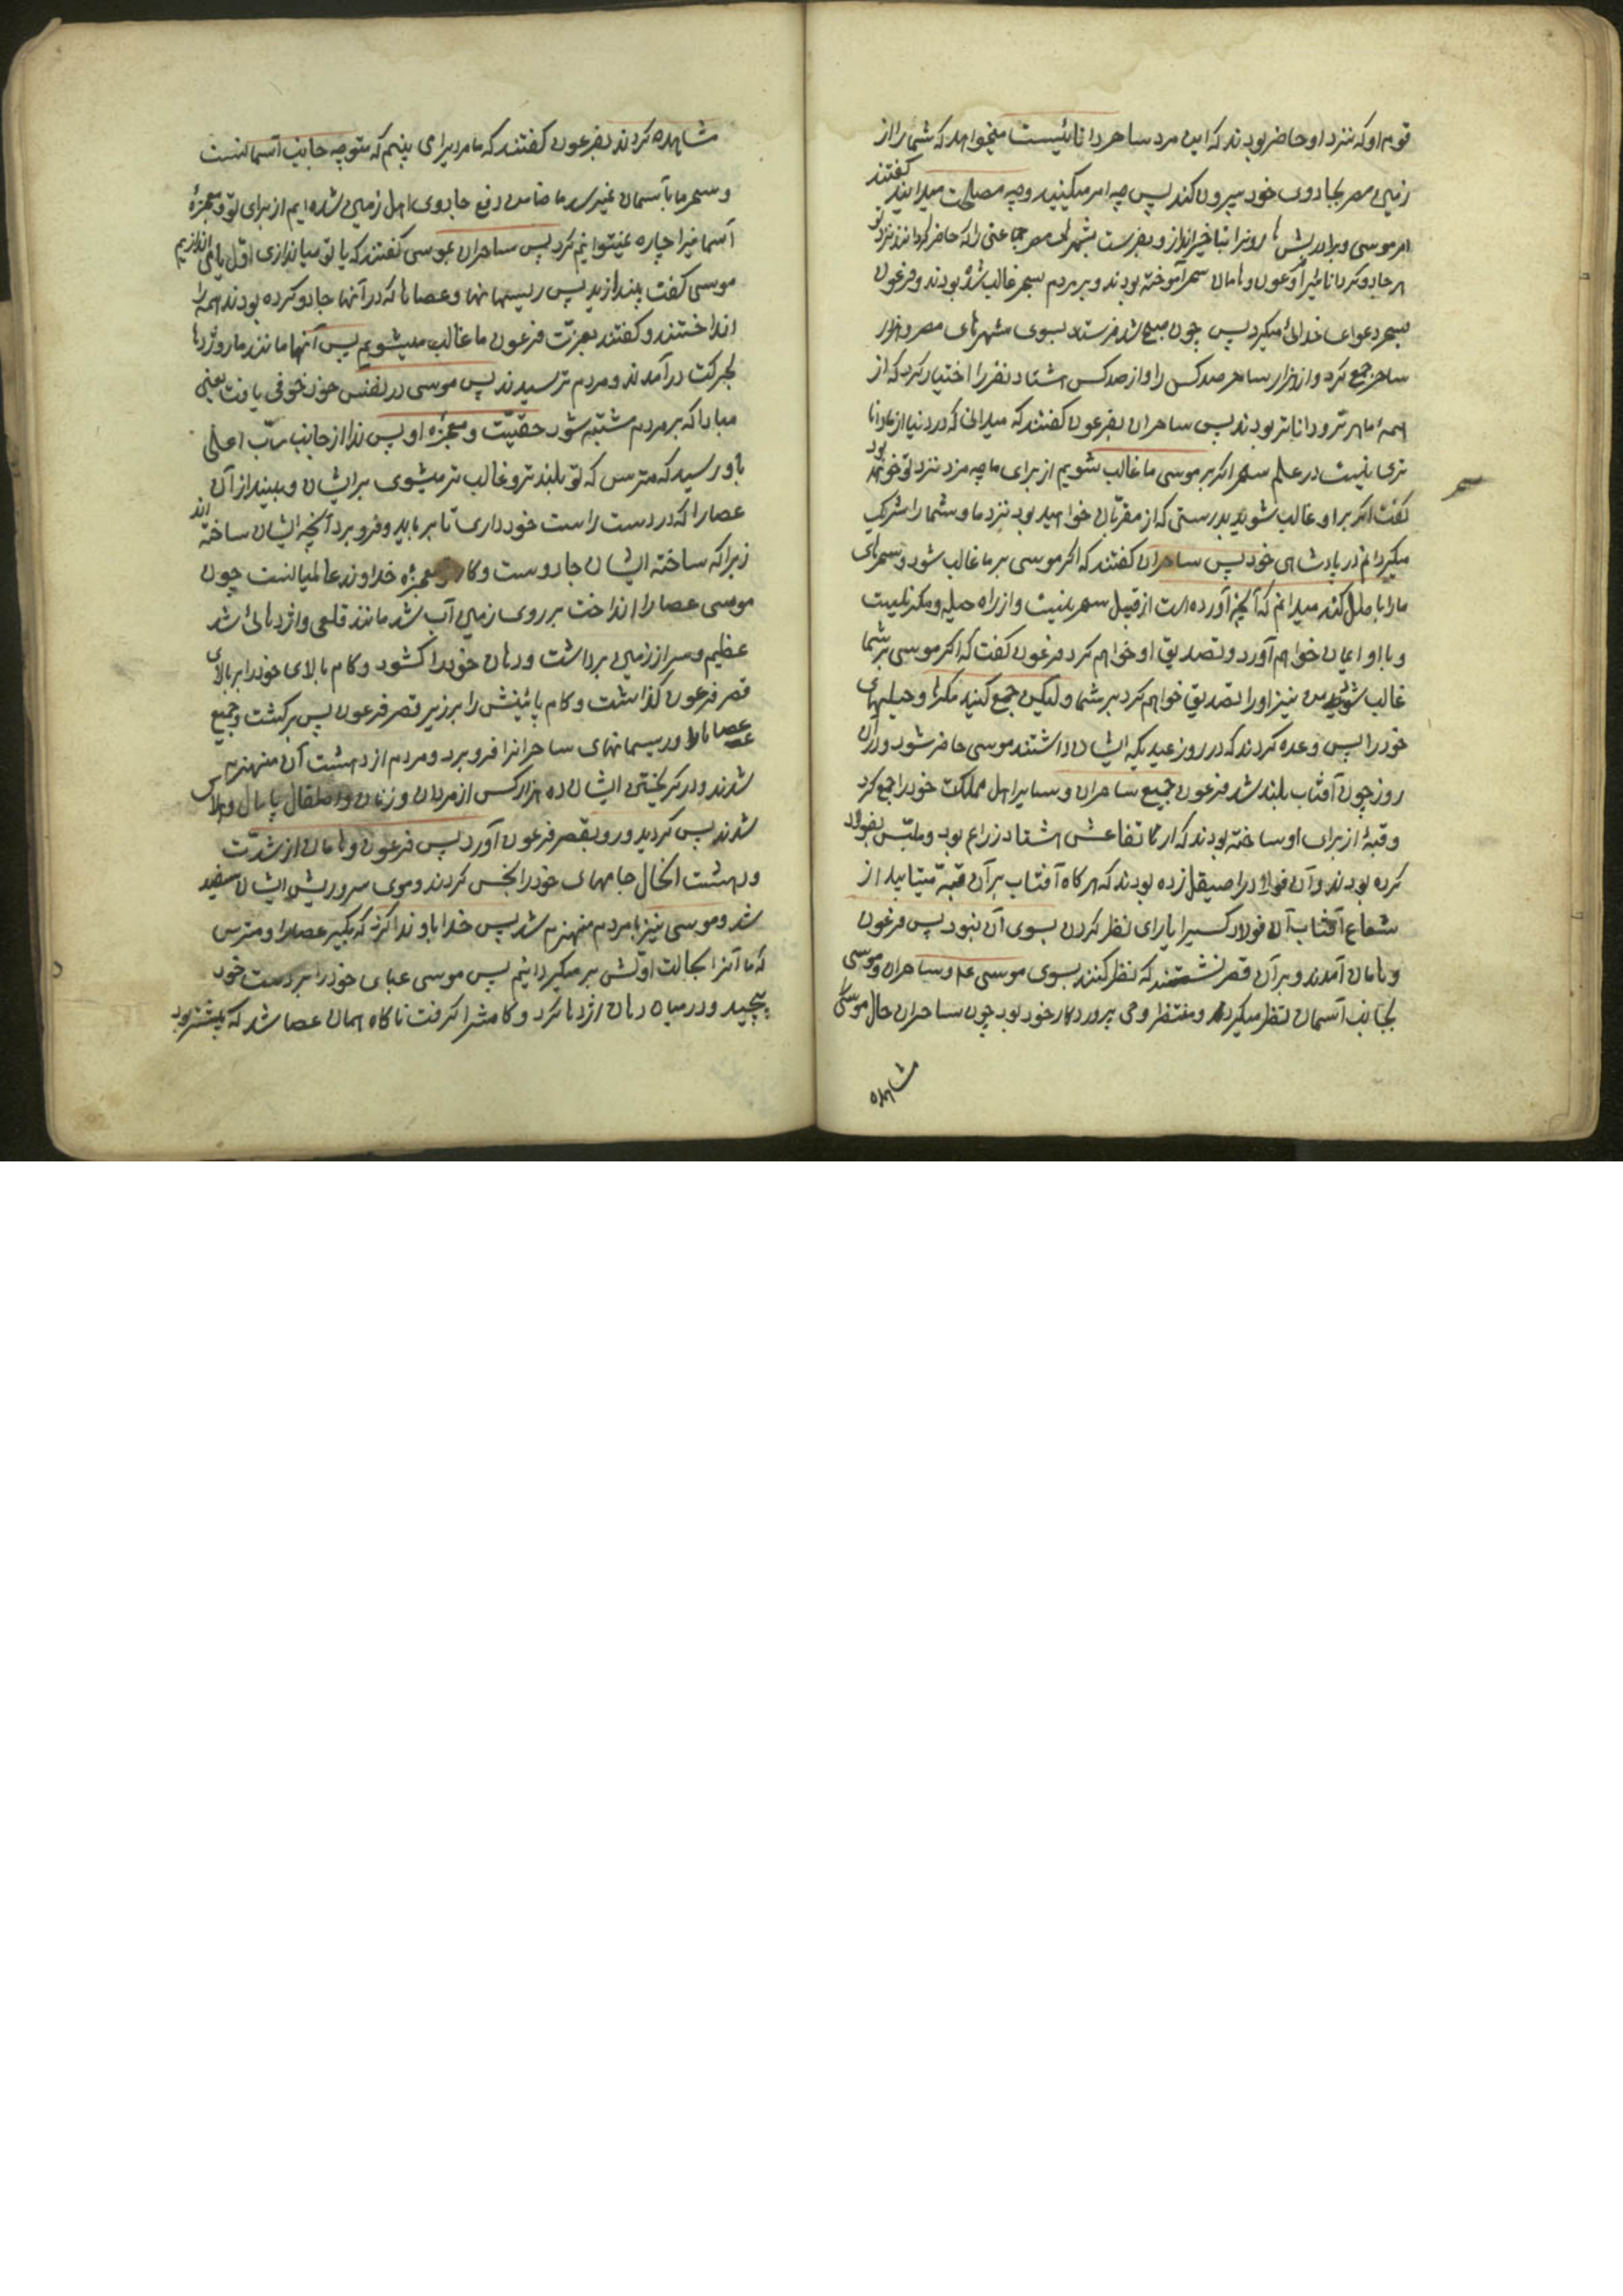 قوم او که نزد او حاضر بودند که این مرد ساحر دانائیست میخواهد که شما را از
زمین مصر بجادوی خود بیرون کند پس چه امر میکنید و چه مصلحت میدانید گفتند
امر موسی و برادرش را روزی بتاخیر انداز و بفرست بشهرهای مصر جماعتی را که حاضر گردانند نزد تو
هر جادوگر دانائی را و فرعون و هامان سحر آموخته بودند و بر مردم بسحر غالب شده بودند و فرعون
بسحر دعوای خدائی میکرد پس چون صبح شد فرستاد بسوی شهرهای مصر و هزار
ساحر جمع کرد و از هزار ساحر صد کس را و از صد کس هشتاد نفر را اختیار کرد که از
همه ماهرتر و داناتر بودند پس ساحران بفرعون گفتند که میدانی که در دنیا از ما دانا
تری نیست در علم سحر اگر بر موسی ما غالب شویم از برای ما چه مزد نزد تو خواهد بود
سحر
گفت اگر بر او غالب شوید بدرستی که از مقربان خواهید بود نزد ما و شما را شریک
میگردانم در پادشاهی خود پس ساحران گفتند که اگر موسی بر ما غالب شود و سحرهای
ما را باطل کند میدانم که آنچه آورده است از قبیل سحر نیست و از راه حیله و مکر نیست
و باو ایمان خواهم آورد و تصدیق او خواهم کرد فرعون گفت که اگر موسی بر شما
غالب شود من نیز او را تصدیق خواهم کرد بر شما ولیکن جمع کنید مکرها و حیلهای
خود را پس وعده کردند که در روز عیدیکه ایشان داشتند موسی حاضر شود و در آن
روز چون آفتاب بلند شد فرعون جمیع ساحران و سایر اهل مملکت خود را جمع کرد
و قبهٔ از برای او ساخته بودند که ارتفاعش هشتاد ذراع بود و ملبّس بفولاد
کرده بودند و آن فولاد را صیقل زده بودند که هر گاه آفتاب بر آن قبه میتابید از
شعاع آفتاب آن فولاد کسیرا یارای نظر کردن بسوی آن نبود پس فرعون
و هامان آمدند و بر آن قصر نشستند که نظر کنند بسوی موسی ع و ساحران و موسی
بجانب آسمان نظر میکرد و منتظر وحی پروردگار خود بود چون ساحران حال موسی را
مشاهده
مشاهده کردند بفرعون گفتند که ما مردیرا می بینیم که متوجه جانب آسمانست
و سحر ما بآسمان نمیرسد ما ضامن دفع جادوی اهل زمین شده ایم از برای تو و معجزهٔ
آسمانیرا چاره نمیتوانیم کرد پس ساحران بموسی گفتند که یا تو میاندازی اول یا ما می اندازیم
موسی گفت بیندازید پس ریسمانها و عصاها که در آنها جادو کرده بودند همه را
انداختند و گفتند بعزت فرعون ما غالب میشویم پس آنها مانند مار و اژدها
بحرکت درآمدند و مردم ترسیدند پس موسی در نفس خود خوفی یافت یعنی
مبادا که بر مردم مشتبه شود حقیت و معجزه او پس ندا از جانب رب اعلی
باو رسید که مترس که تو بلندتر و غالب تر میشوی بر ایشان و بینداز آن
عصا را که در دست راست خود داری تا برباید و فرو برد آنچه ایشان ساخته اند
زیرا که ساخته ایشان جادوست و کار معجزه خداوند عالمیانست چون
موسی عصا را انداخت بر روی زمین آب شد مانند قلعی و اژدهائی شد
عظیم و سر از زمین برداشت و دهان خود را گشود و کام بالای خود را بر بالای
قصر فرعون گذاشت و کام پائینش را بر زیر قصر فرعون پس برگشت و جمیع
عصاها و ریسمانهای ساحرانرا فرو برد و مردم از دهشت آن منهزم
شدند و در گریختن ایشان ده هزار کس از مردان و زنان و اطفال پامال و هلاک
شدند پس گردید و رو بقصر فرعون آورد پس فرعون و هامان از شدت
دهشت آنحال جامهای خود را نجس کردند و موی سر و ریش ایشان سفید
شد و موسی نیز با مردم منهزم شد پس خدا باو ندا کرد که بگیر عصا را و مترس
که ما آنرا بحالت اولش بر میگردانیم پس موسی عبای خود را بر دست خود
پیچید و در میان دهان اژدها کرد و کامش را گرفت ناگاه همان عصا شد که پیشتر بود